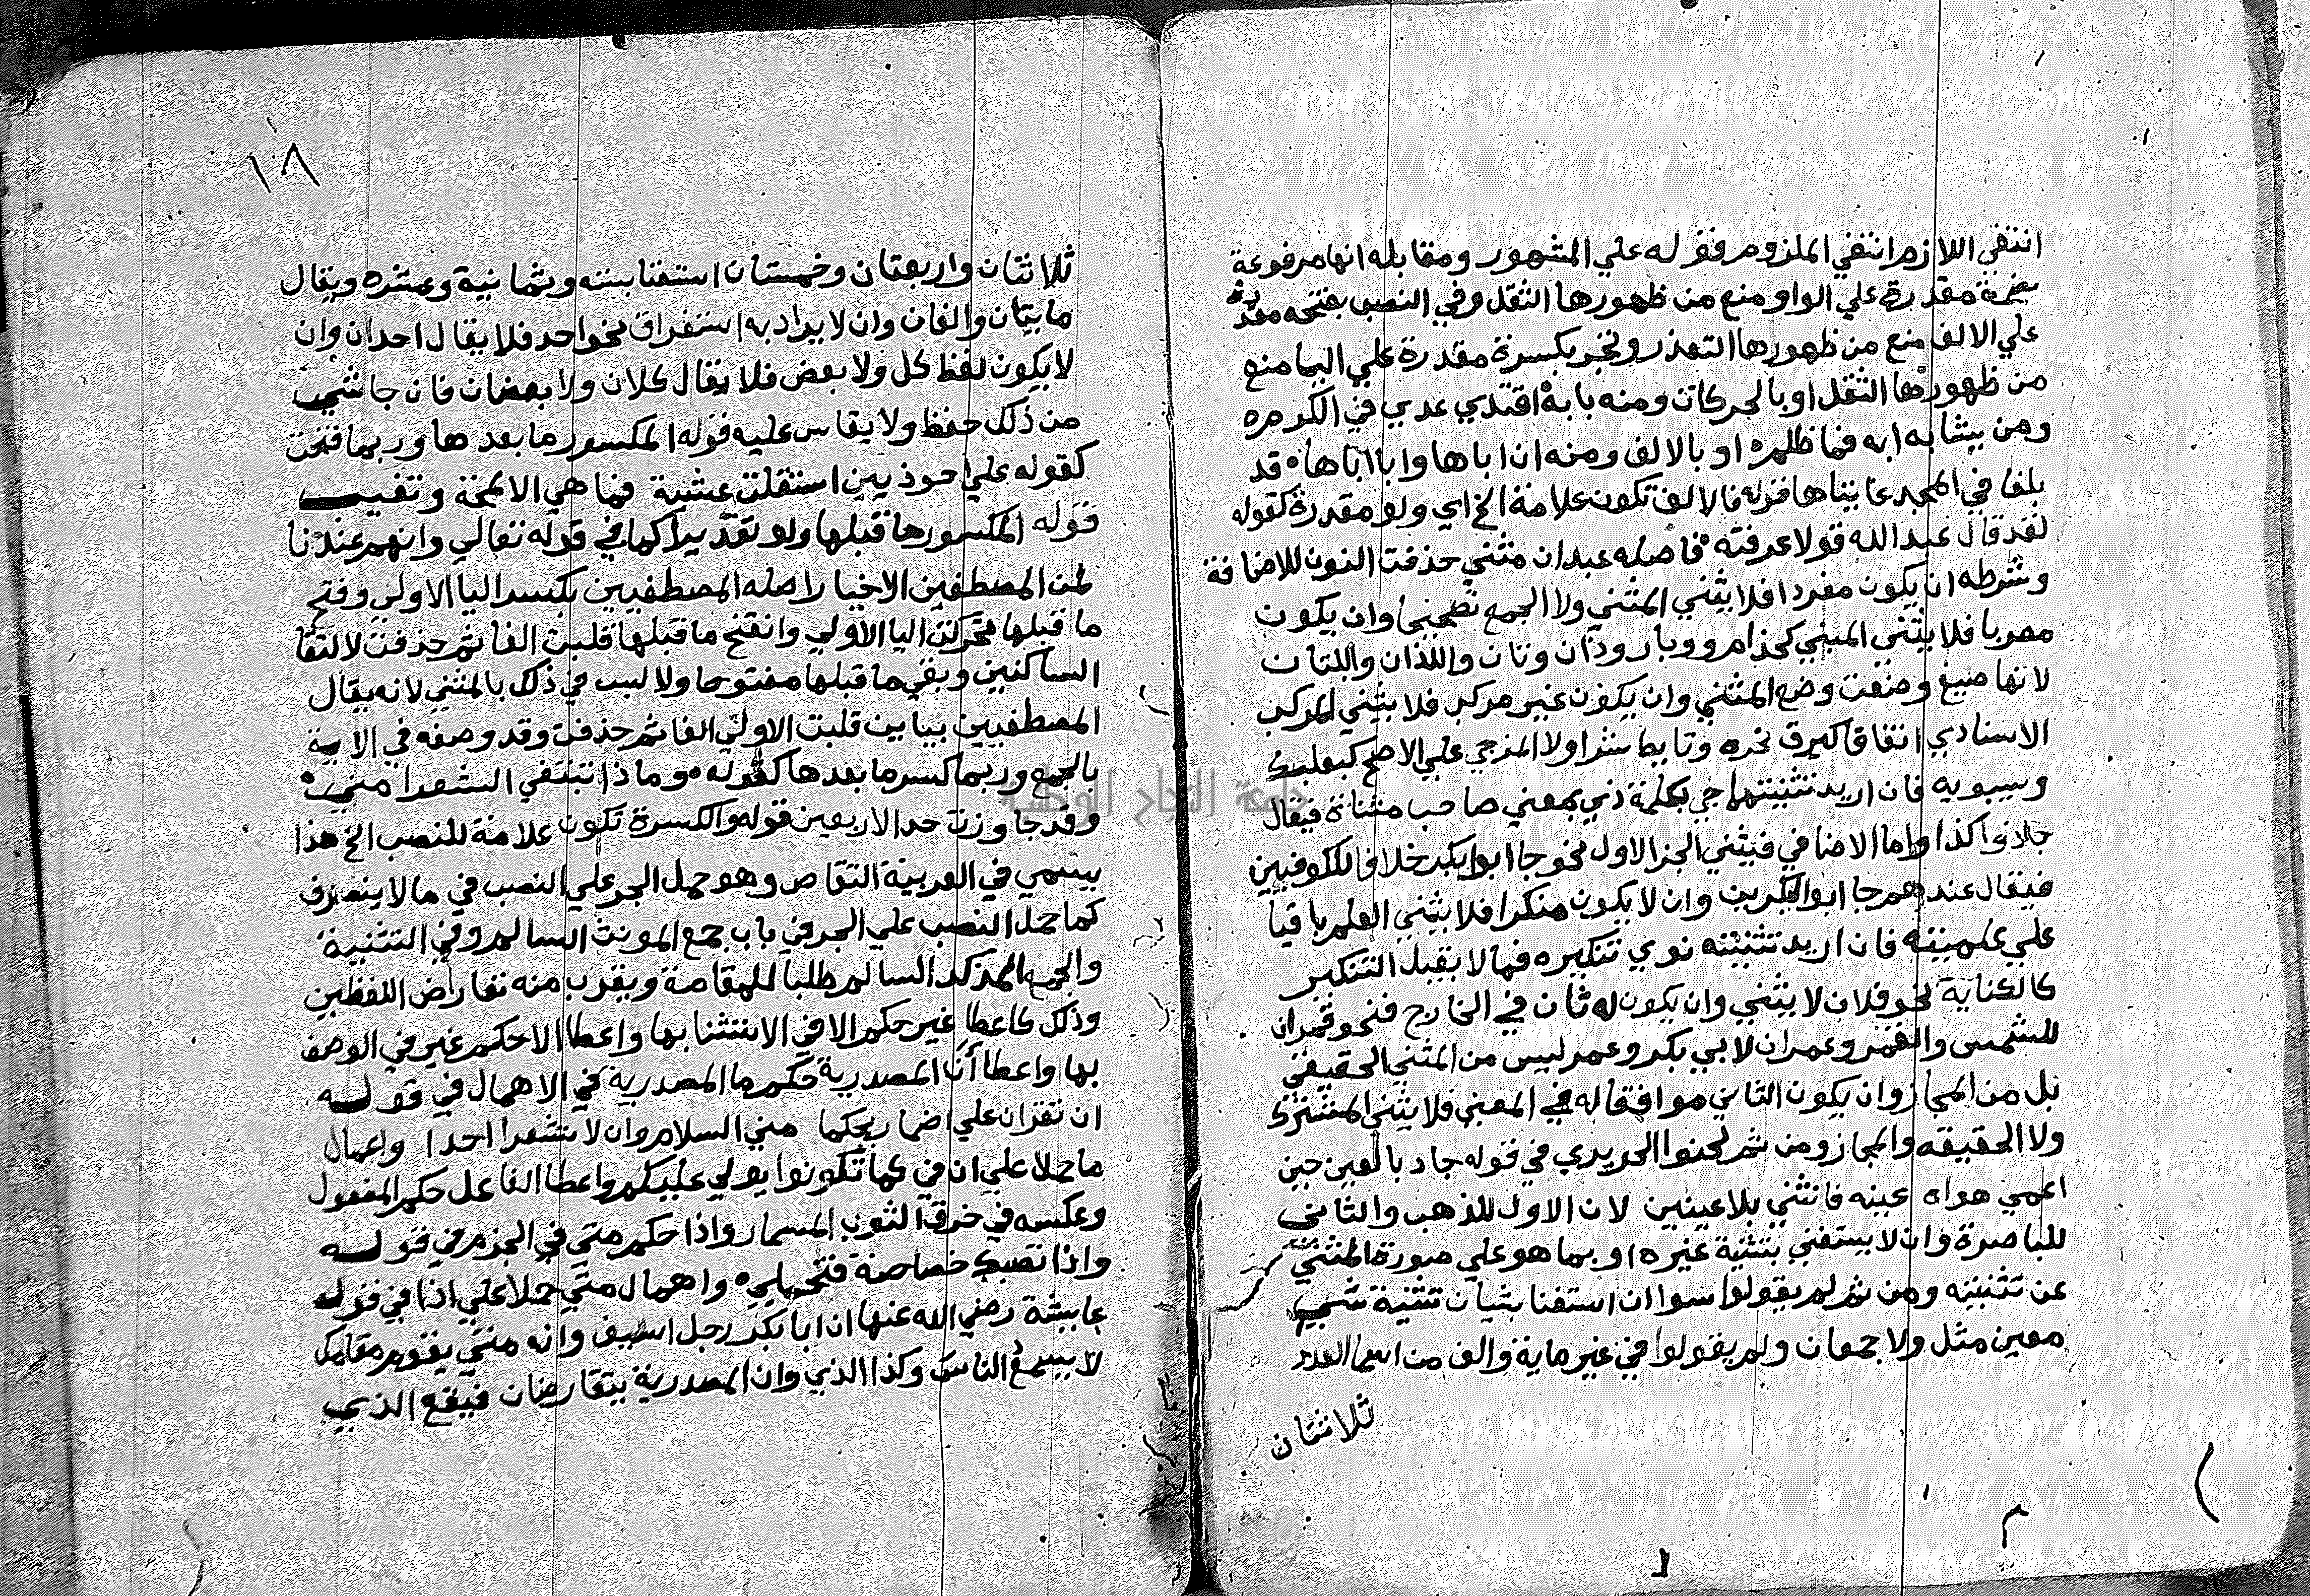 انتفي اللازم انتفي الملزوم فقوله علي المشهور ومقابله انها مرفوعة
بضمة مقدرة علي الواو منع من ظهورها الثقل وفي النصب بفتحه مقدرة
علي الالف منع من ظهورها التعذر وتجر بكسرة مقدرة علي اليا منع
من ظهورها الثقل او بالحركات ومنه بابه اقتدي عدي في الكرم
ومن يشابه ابه فما ظلم او بالالف ومنه ان اباها وابا اباها قد
بلغا في المجد غايتاها قوله فالالف تكون علامة الخ اي ولو مقدرة كقوله
لقد قال عبد الله قولا عرفته فاصله عبدان مثني حذفت النون للاضافة
وشرطه ان يكون مفردا فلا يثني المثني ولا الجمع وان يكون
معربا فلا يثني المبني كحذام ووبار وذان وتان واللذان واللتان
لانها صيغ وضعت وضع المثني وان يكون غير مركب فلا يثني المركب
الاسنادي اتفاقا كبرق نحره وتابط شرا ولا المزجي علي الاصح كبعلبك
وسيبويه فان اريد تثنيتهما جي بكلمة ذي بمعني صاحب مثناة فيقال
جا ذوا كذا واما الاضافي فيثني الجز الاول نحو جا ابوا بكر خلافا للكوفيين
فيقال عندهم جا ابوا البكرين وان لا يكون منكرا فلا يثني العلم باقيا
علي علميته فان اريد تثنيته نوي تنكيره فما لا يقبل التنكير
كالكناية نحو فلان لا يثني وان يكون له ثان في الخارج فنحو قمران
للشمس والقمر وعمران لابي بكر وعمر ليس من المثني الحقيقي
بل من المجاز وان يكون الثاني موافقا له في المعني فلا يثني المشترك
ولا الحقيقه والمجاز ومن ثم لحنوا الحريدي في قوله جاد بالعين حين
اعمي هواه عينه فانثني بلا عينين لان الاول للذهب والثاني
للباصرة وان لا يستغني بتثنية غيره او بما هو علي صورة المثني
عن تثنيته ومن ثم لم يقولوا سواان استغنا بشيان تثنية شي
معين مثل ولا جمعان ولم يقولوا في غير ماية والف من اسما العدد
ثلاثتان
١٠٨
ثلاثتان واربعتان وخمستان استغنا بسته وبثمانية وعشره ويقال
مايتان والفان وان لا يراد به استغراق نحو احد فلا يقال احدان وان
لا يكون لفظ كل ولا بعض فلا يقال كلان ولا بعضان فان جا شي
من ذلك حفظ ولا يقاس عليه قوله المكسور ما بعدها وربما فتحت
كقوله علي احوذيين استقلت عشية فما هي الا لمحة وتغيب
قوله المكسور ما قبلها ولو تقديرا كما في قوله تعالي وانهم عندنا
لمن المصطفين الاخيار اصله المصطفيين بكسر اليا الاولي وفتح
ما قبلها تحركت اليا الاولي وانفتح ما قبلها قلبت الفا ثم حذفت لالتقا
الساكنين وبقي ما قبلها مفتوحا ولا لبس في ذلك بالمثني لانه يقال
المصطفيين بيايين قلبت الاولي الفا ثم حذفت وقد وصفه في الاية
بالجمع وربما كسر ما بعدها كقوله وماذا تبتغي الشعرا مني
وقد جاوزت حد الاربعين قوله والكسرة تكون علامة للنصب الخ هذا
يسمي في العربية التقاص وهو حمل الجر علي النصب في ما لا ينصرف
كما حمل النصب علي الجر في باب جمع المونث السالم وفي التثنية
والجمع المذكر السالم طلبا للمقاصة ويقرب منه تقارض اللفظين
وذلك كاعطا غير حكم الا في الاستثنا بها واعطا الا حكم غير في الوصف
بها واعطا أن المصدرية حكم ما المصدرية في الاهمال في قوله
ان تقران علي اسما ويحكما مني السلام وان لا تشعرا احدا واعمال
ما حملا علي ان في كما تكونوا يولي عليكم واعطا الفاعل حكم المفعول
وعكسه في خرق الثوب المسمار واذا حكم متي في الجزم في قوله
واذا تصبك خصاصة فتحمل واهمال متي حملا علي اذا في قول
عايشة رضي الله عنها ان ابا بكر رجل اسيف وانه متي يقوم مقامك
لا يسمع الناس وكذا الذي وان المصدرية يتقارضان فيقع الذي